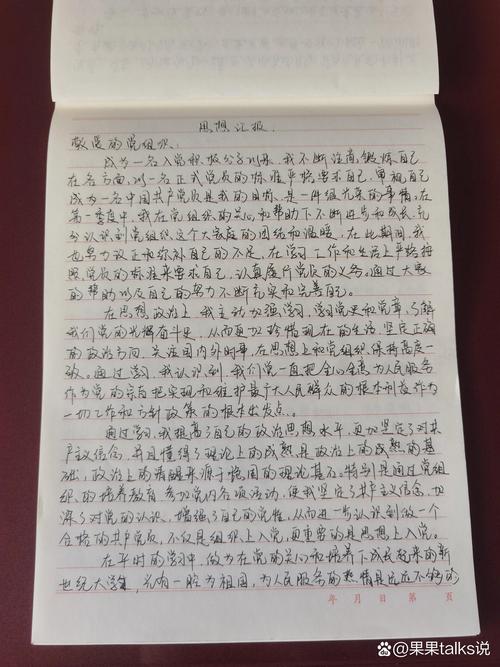 思想汇报
敬爱的党组织:
成为一名入党积极分子以来,我不断注意锻炼自己
在各方面,以一名正式党员的标准严格要求自己,
成为一名中国共产党员是我的目标,是一件很光荣的事情。在
第一季度中,我在党组织的关心和帮助下不断进步和成长,充
分认识到党组织这个大家庭的团结和温暖,在此期间,我
也努力改正和弥补自己的不足,在学习、工作和生活上严格按照
党员的标准来要求自己,认真履行党员的义务。通过大家
的帮助以及自己的努力不断充实和完善自己。
在思想政治上,我主动加强学习,学习党史和党章,了解
我们党的光辉奋斗史,从而更加珍惜现在的生活,坚定正确
的政治方向,关注国内外时事,在思想上和党组织保持高度一
致。通过学习,我认识到,我们党一直把全心全意为人民服务
作为党的宗旨,把实现和维护最广大人民群众的根本利益作为
一切工作和方针政策的根本出发点。
通过学习,我提高了自己的政治思想水平,更加坚定了对共
产主义信念,并且懂得了理论上的成熟是政治上的成熟的基
础,政治上的清醒来源于稳固的理论基石。特别是通过党组
织的培养教育,参加党内各项活动,使我坚定了共产主义信念,加
深了对党的认识,增强了自己的党性,从而进一步认识到做一个
合格的共产党员,不仅是组织上入党,更重要的是思想上入党。
在平时的学习中,做为在党的关心和培养下成长起来的新
世纪大学生,光有一腔为祖国,为人民服务的热情是远远不够的
年 月 日 第 页
果果talks说